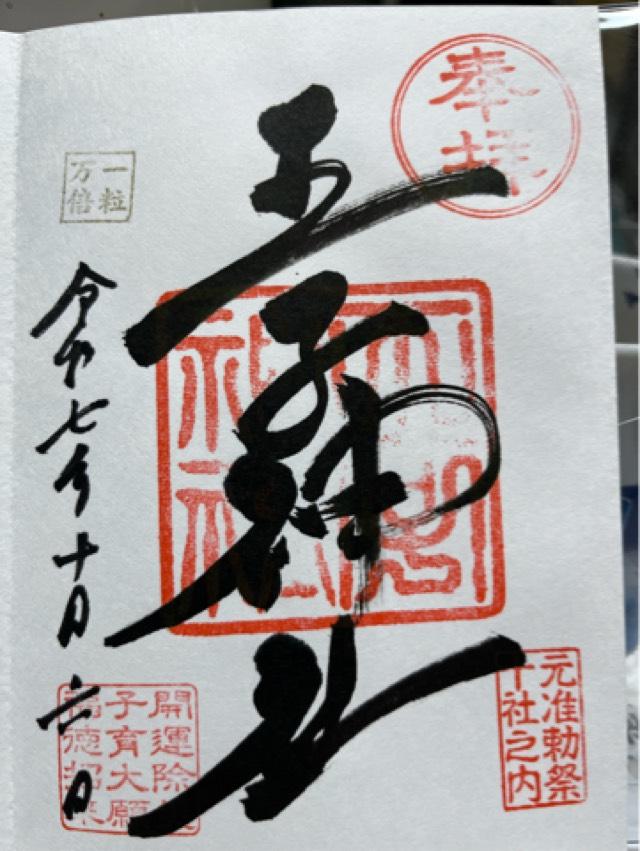 奉拝
王子神社
一粒
万倍
令和七年十月六日
元准勅祭
十社之内
開運除
子育大願
福徳招来